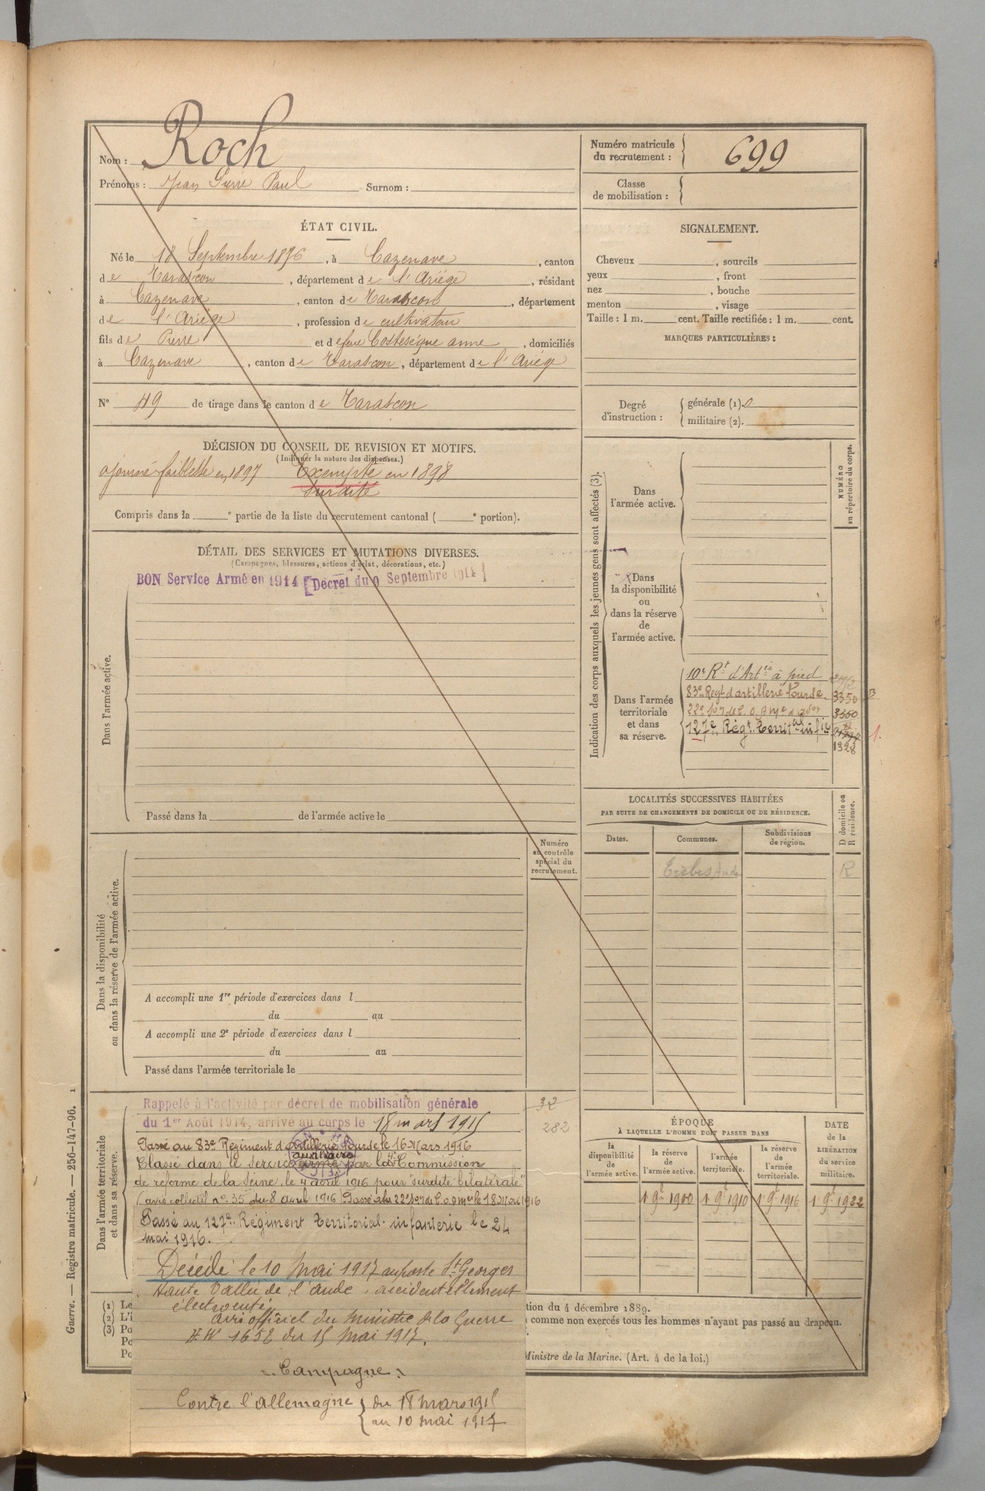 Nom : Roch
Prénoms : Jean Pierre Paul Surnom :
Numéro matricule du recrutement : 699
Classe de mobilisation :
ÉTAT CIVIL.
Né le 18 Septembre 1876, à Cazenave, canton
de Tarascon, département de l'Ariège, résidant
à Cazenave, canton de Tarascon, département
de l'Ariège, profession de cultivateur
fils de Pierre et de feue Costeseque anne, domiciliés
à Cazenave, canton de Tarascon, département de l'Ariège
N° 49 de tirage dans le canton de Tarascon
SIGNALEMENT.
Cheveux , sourcils
yeux , front
nez , bouche
menton , visage
Taille : 1 m. cent. Taille rectifiée : 1 m. cent.
MARQUES PARTICULIÈRES :
Degré d'instruction : générale (1) 0
militaire (2).
DÉCISION DU CONSEIL DE REVISION ET MOTIFS.
(Indiquer la nature des dispenses.)
ajourné faiblesse en 1897 Exempté en 1898
surdité
Compris dans la e partie de la liste du recrutement cantonal ( e portion).
DÉTAIL DES SERVICES ET MUTATIONS DIVERSES.
(Campagnes, blessures, actions d'éclat, décorations, etc.)
BON Service Armé en 1914 [Décret du 9 Septembre 1914]
Dans l'armée active.
Passé dans la de l'armée active le
Numéro au contrôle spécial du recrutement.
Dans la disponibilité ou dans la réserve de l'armée active.
A accompli une 1re période d'exercices dans l
du au
A accompli une 2e période d'exercices dans l
du au
Passé dans l'armée territoriale le
Dans l'armée territoriale et dans sa réserve.
Rappelé à l'activité par décret de mobilisation générale
du 1er Août 1914, arrivé au corps le 18 mars 1915
32
282
Passé au 83e Régiment d'artillerie Lourde le 16 Mars 1916
Classé dans le service auxiliaire par la Commission
de réforme de la Seine, le 4 avril 1916 pour "surdité bilatérale"
(avis collectif n° 35 du 8 avril 1916 Passé au 22e le 18 Mai 1916
Passé au 127e Régiment Territorial infanterie le 24
mai 1916.
Décédé le 10 Mai 1917 au poste St Georges
Haute Vallée de l'aude, accidentellement
électrocuté
avis officiel du ministre de la Guerre
1652 du 15 mai 1917.
Campagne
Contre l'allemagne du 18 mars 1915
au 10 mai 1917
Indication des corps auxquels les jeunes gens sont affectés (3).
NUMÉRO au répertoire du corps.
Dans l'armée active.
Dans la disponibilité ou dans la réserve de l'armée active.
Dans l'armée territoriale et dans sa réserve.
10e Rt d'Artie à pied
83e Régt d'artillerie Lourde 3350
127e Régt Territal infie
1328
LOCALITÉS SUCCESSIVES HABITÉES
PAR SUITE DE CHANGEMENTS DE DOMICILE OU DE RÉSIDENCE.
Dates. Communes. Subdivisions de région. D domicile ou R résidence.
Trèbes Aude R
ÉPOQUE
À LAQUELLE L'HOMME DOIT PASSER DANS
la disponibilité de l'armée active. la réserve de l'armée active. l'armée territoriale. la réserve de l'armée territoriale.
DATE de la LIBÉRATION du service militaire.
1 9bre 1900 1 9bre 1910 1 9bre 1916 1 9bre 1922
(1) Le
(2) L'i
(3) Po
Po
Po
tion du 4 décembre 1889.
comme non exercés tous les hommes n'ayant pas passé au drapeau.
Ministre de la Marine. (Art. 4 de la loi.)
Guerre. — Registre matricule. — 256-147-96.